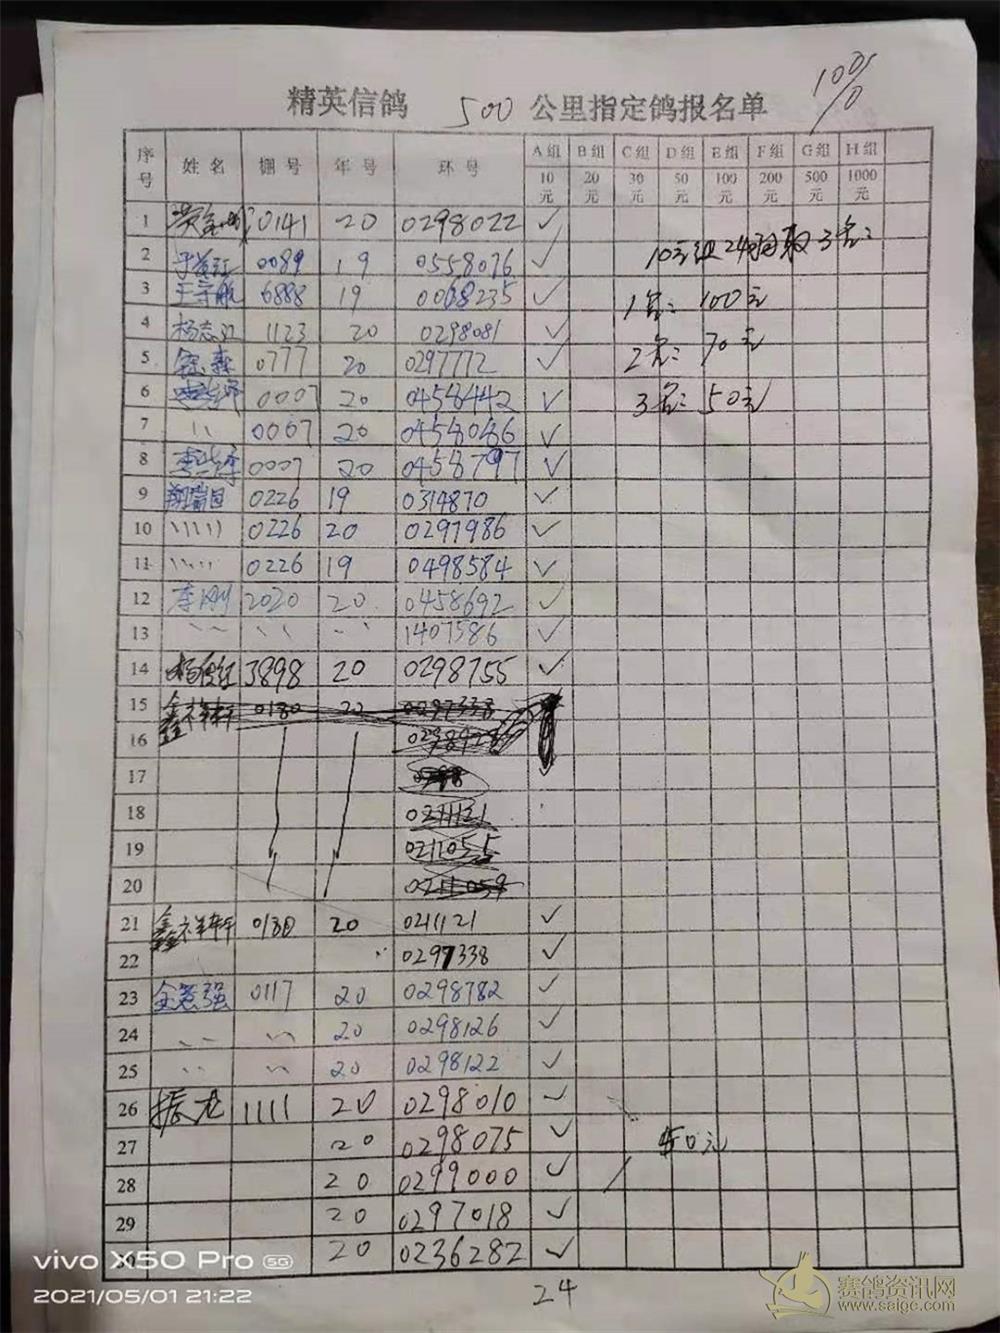 10%
精英信鸽 500 公里指定鸽报名单
序号 姓名 棚号 年号 环号 A组 B组 C组 D组 E组 F组 G组 H组
10元 20元 30元 50元 100元 200元 500元 1000元
1 0141 20 0298022 ✓
10元组24羽取3名:
2 0089 19 0558076 ✓
3 王宇航 6888 19 0068235 ✓
1名: 100元
4 1123 20 0298081 ✓
2名: 70元
5 0777 20 0297772 ✓
6 0007 20 0458442 ✓
3名: 50元
7 〃 0007 20 0458086 ✓
8 0007 20 0458797 ✓
9 0226 19 0314870 ✓
10 〃 0226 20 0297986 ✓
11 〃 0226 19 0498584 ✓
12 李刚 2020 20 0458692 ✓
13 〃 〃 〃 1407586 ✓
14 3898 20 0298755 ✓
15 鑫祥轩 0180 20 0297338
16
17
18 0211121
19 0211055
20 0211059
21 鑫祥轩 0180 20 0211121 ✓
22 0297338 ✓
23 0117 20 0298782 ✓
24 〃 〃 20 0298126 ✓
25 〃 〃 20 0298122 ✓
26 振龙 1111 20 0298010 ✓
27 20 0298075 ✓
50元
28 20 0299000 ✓
29 20 0297018 ✓
30 20 0236282 ✓
24
vivo X50 Pro 5G
2021/05/01 21:22
赛鸽资讯网
www.saigc.com